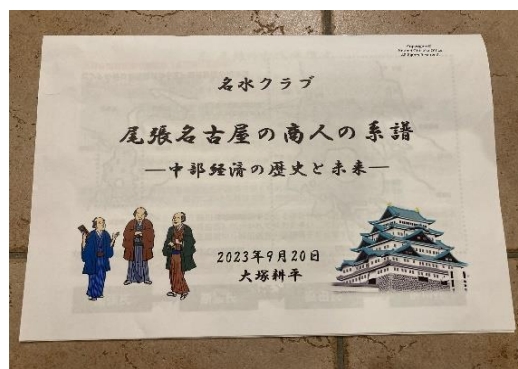 名水クラブ
尾張名古屋の商人の系譜
―中部経済の歴史と未来―
2023年9月20日
大塚耕平